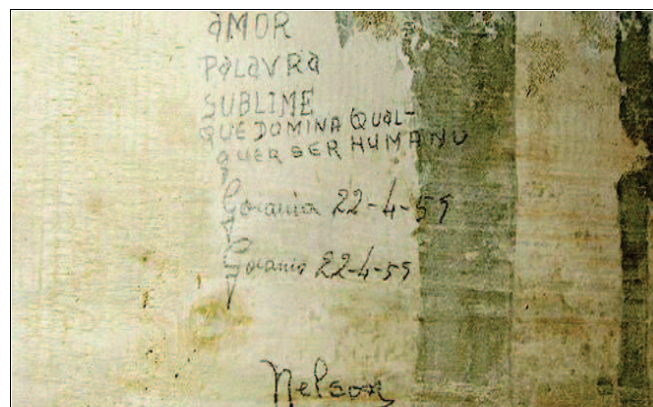 AMOR
PALAVRA
SUBLIME
QUE DOMINA QUAL-
QUER SER HUMANO
Goiania 22-4-59
Goiania 22-4-59
Nelson